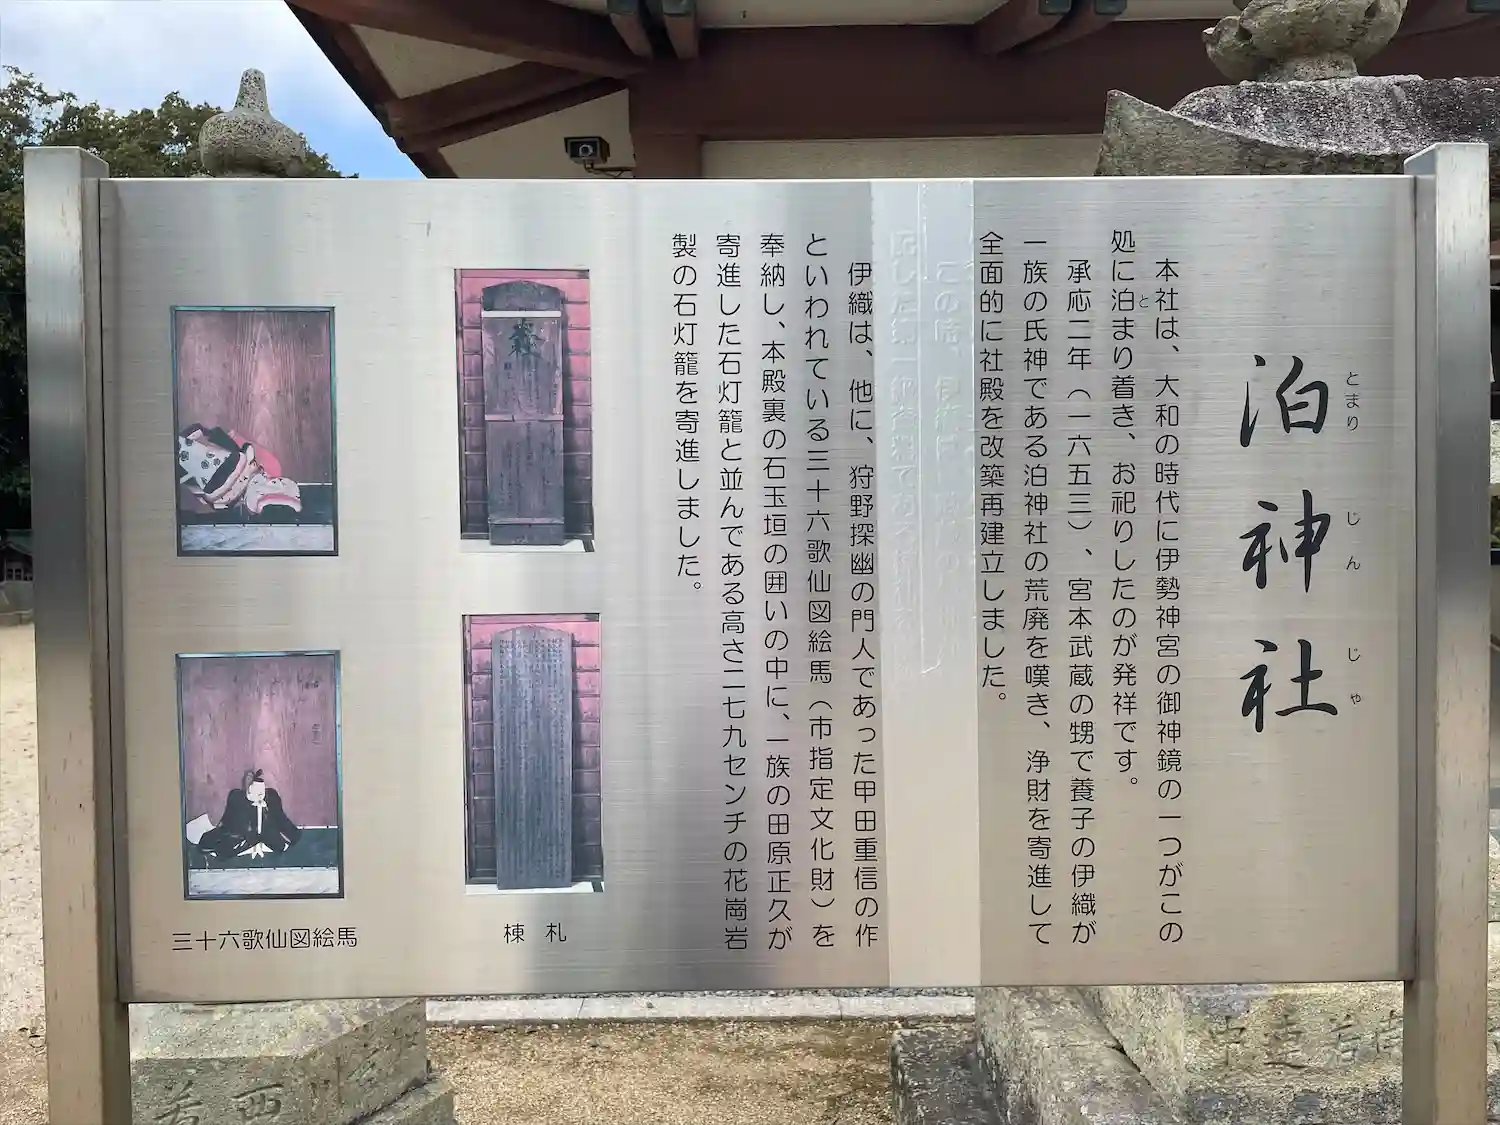 泊神社
とまり
じん
じゃ
本社は、大和の時代に伊勢神宮の御神鏡の一つがこの
処に泊まり着き、お祀りしたのが発祥です。
と
承応二年（一六五三）、宮本武蔵の甥で養子の伊織が
一族の氏神である泊神社の荒廃を嘆き、浄財を寄進して
全面的に社殿を改築再建立しました。
この時、伊織は
伊織は、他に、狩野探幽の門人であった甲田重信の作
といわれている三十六歌仙図絵馬（市指定文化財）を
奉納し、本殿裏の石玉垣の囲いの中に、一族の田原正久が
寄進した石灯籠と並んである高さ二七九センチの花崗岩
製の石灯籠を寄進しました。
棟札
三十六歌仙図絵馬
西